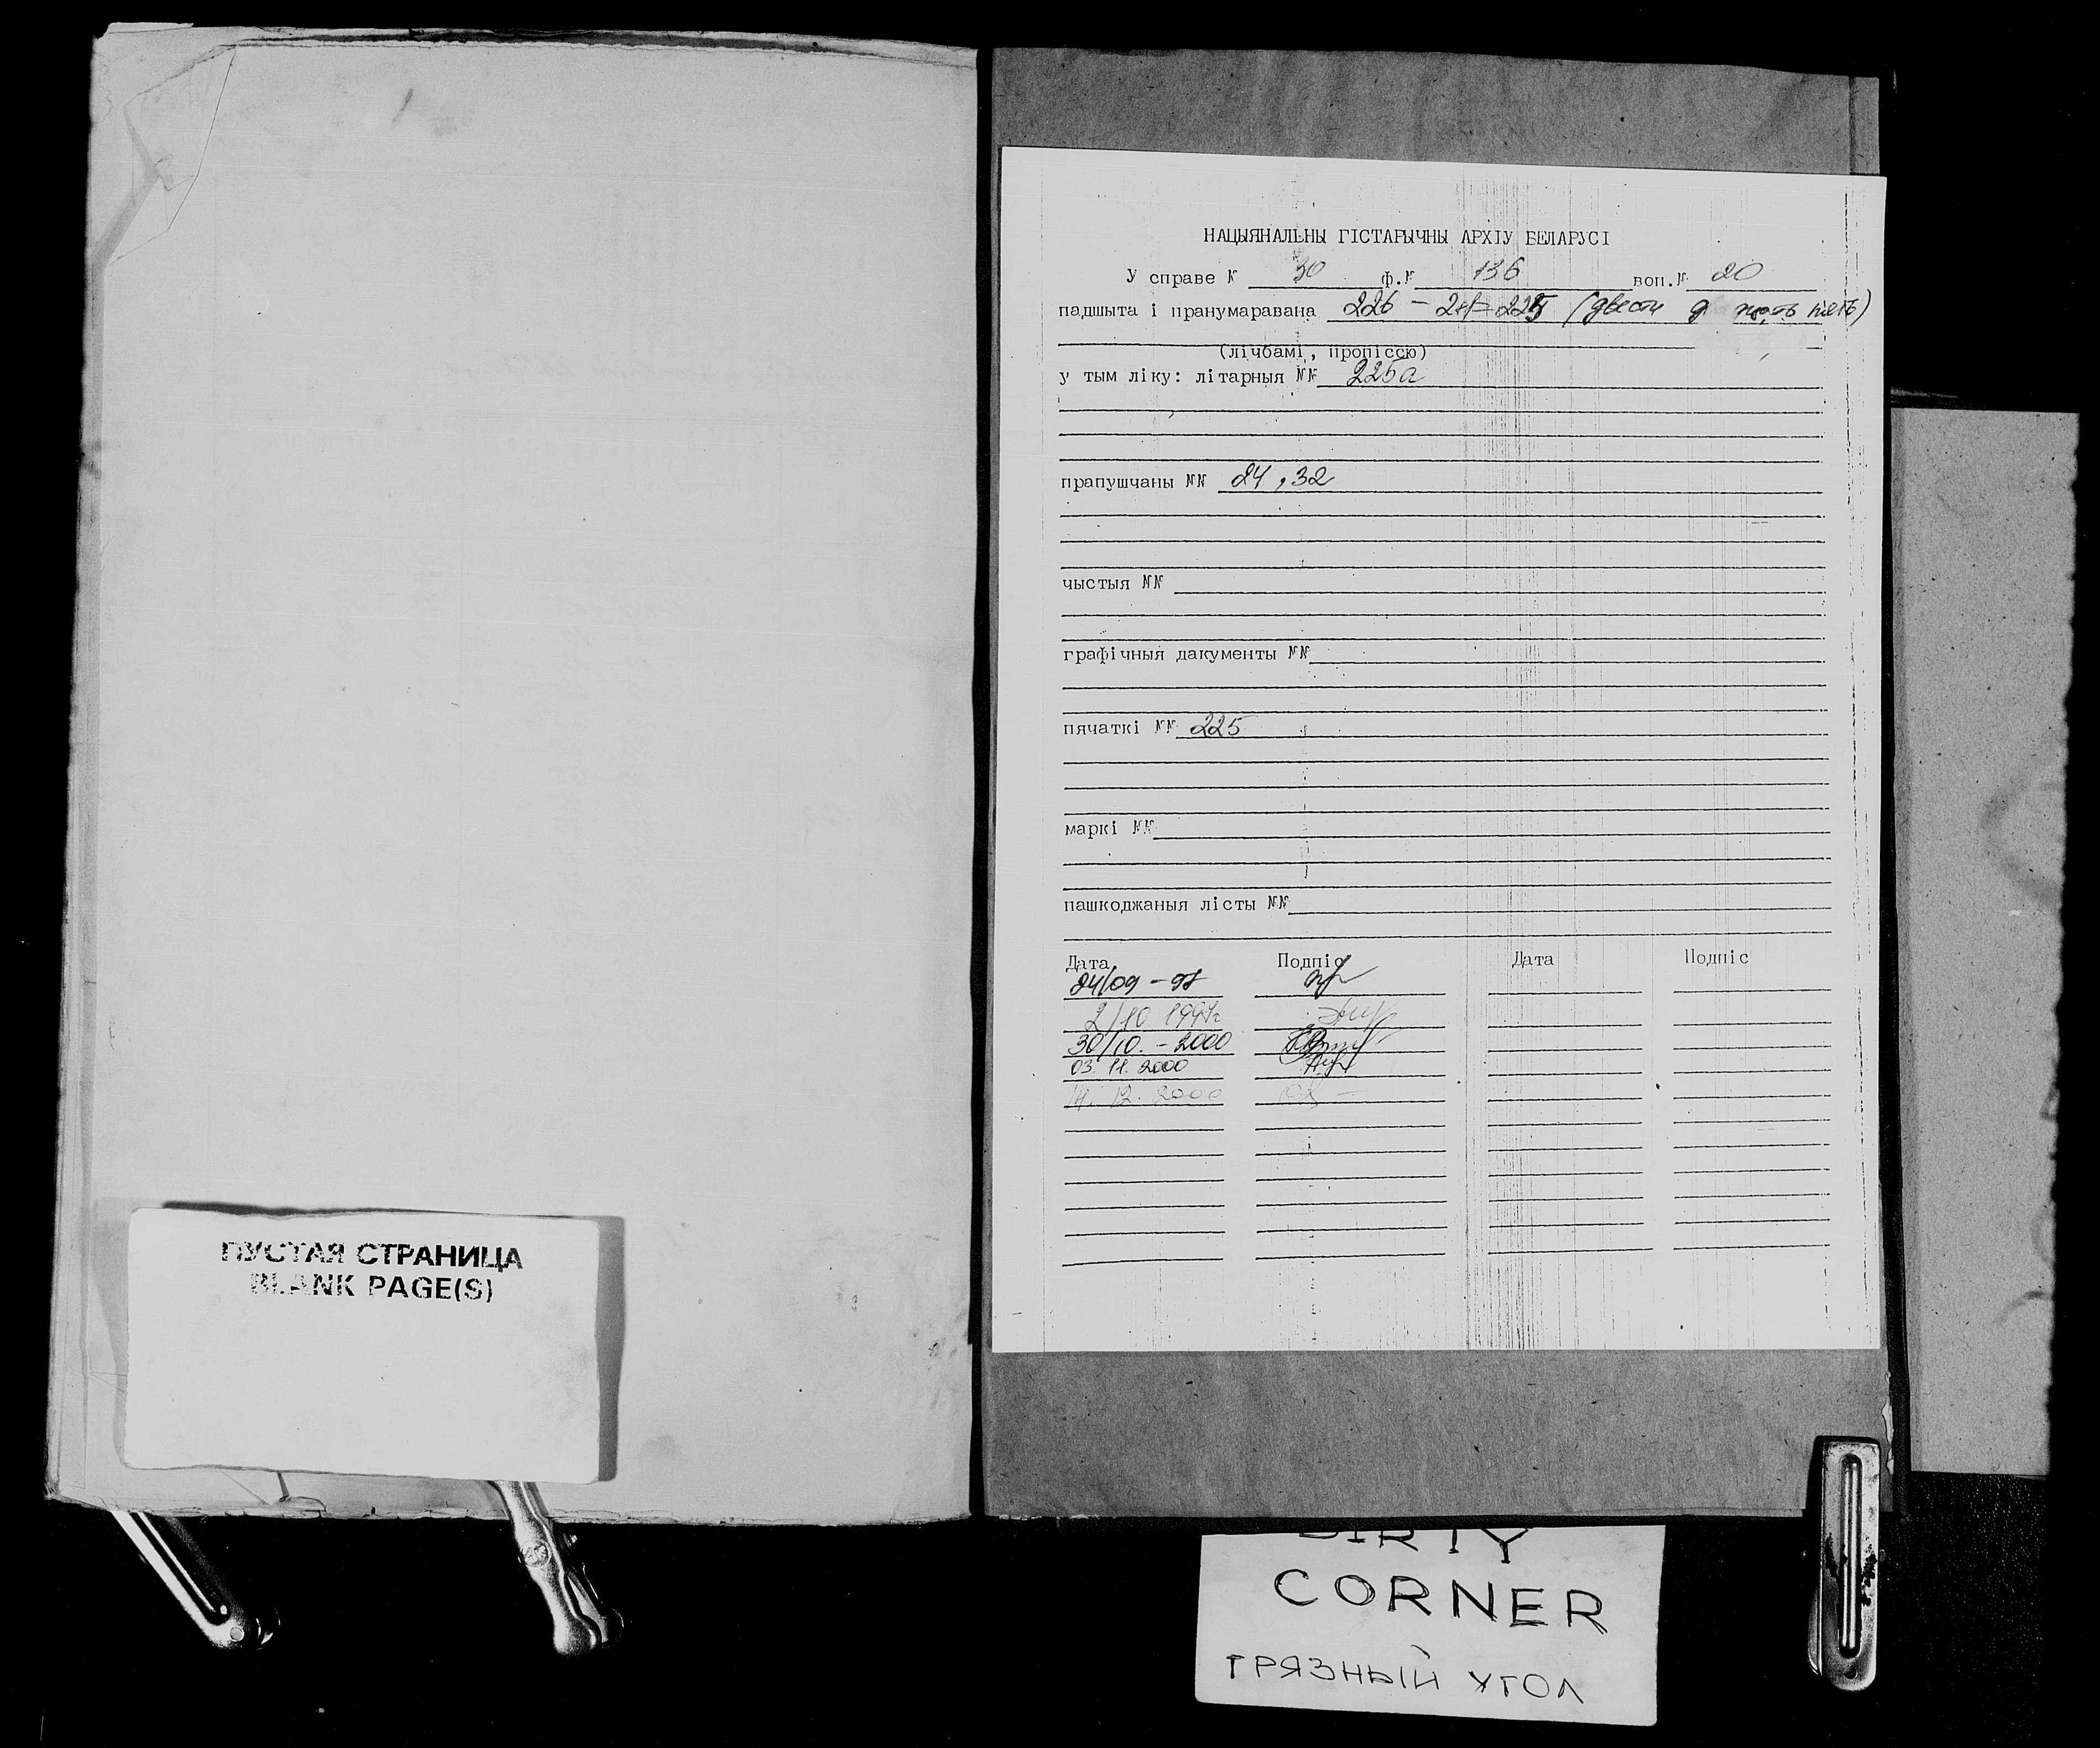 НАЦЫЯНАЛЬНЫ ГІСТАРЫЧНЫ АРХІУ БЕЛАРУСІ
У справе № 30 ф.№ 136 воп.№ 20
падшыта і пранумаравана 226 - 2+1= 225 (двести пять)
(лічбамі, пропіссю)
у тым ліку: літарныя №№ 225а
прапушчаны №№ 24, 32
чыстыя №№
графічныя дакументы №№
пячаткі №№ 225
маркі №№
пашкоджаныя лісты №№
Дата Подпіс Дата Подпіс
24/09 - 97
2/10 1997г
30/10. - 2000
03. 11. 2000
14. 12. 2000
ПУСТАЯ СТРАНИЦА
BLANK PAGE(S)
DIRTY
CORNER
ГРЯЗНЫЙ УГОЛ